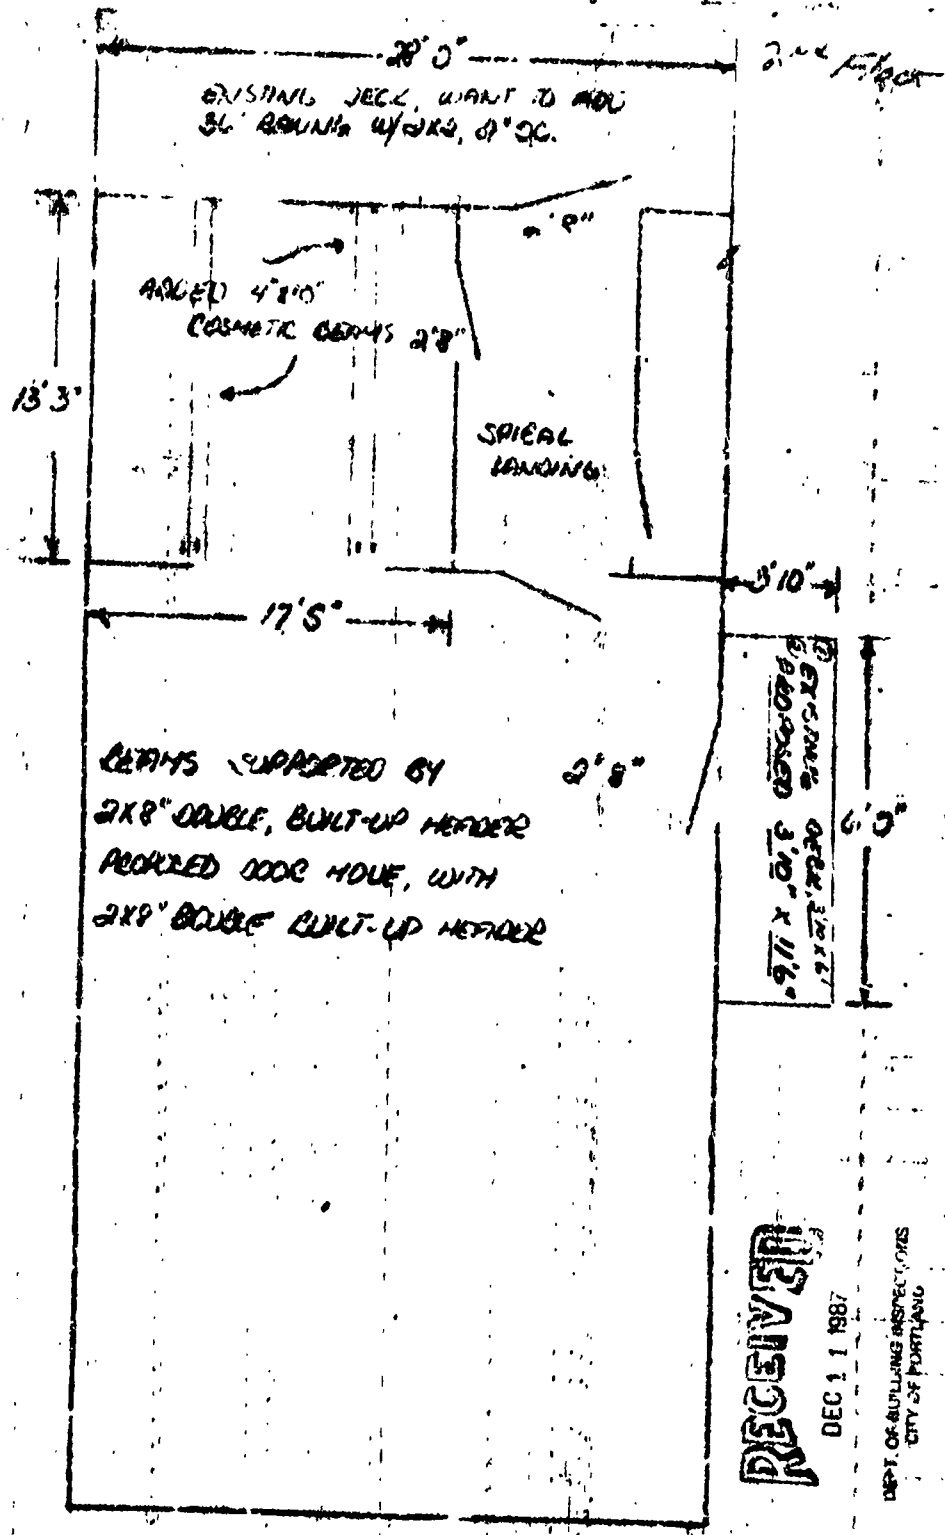 28'0"
2nd
EXISTING DECK, WANT TO ADD
36" W/2X2, OC.
2'8"
ADDED 4"8'0"
COSMETIC BEAMS 2'8"
13'3"
SPIRAL
LANDING
3'10"
17'5"
EXISTING DECK, 3'10 x 6'
PROPOSED 3'10" x 11'6"
6'0"
BEAMS SUPPORTED BY
2'8"
2X8" DOUBLE, BUILT-UP HEADER
PROPOSED DOOR MOVE, WITH
2X8" DOUBLE BUILT-UP HEADER
RECEIVED
DEC 11 1987
DEPT. OF BUILDING INSPECTIONS
CITY OF PORTLAND